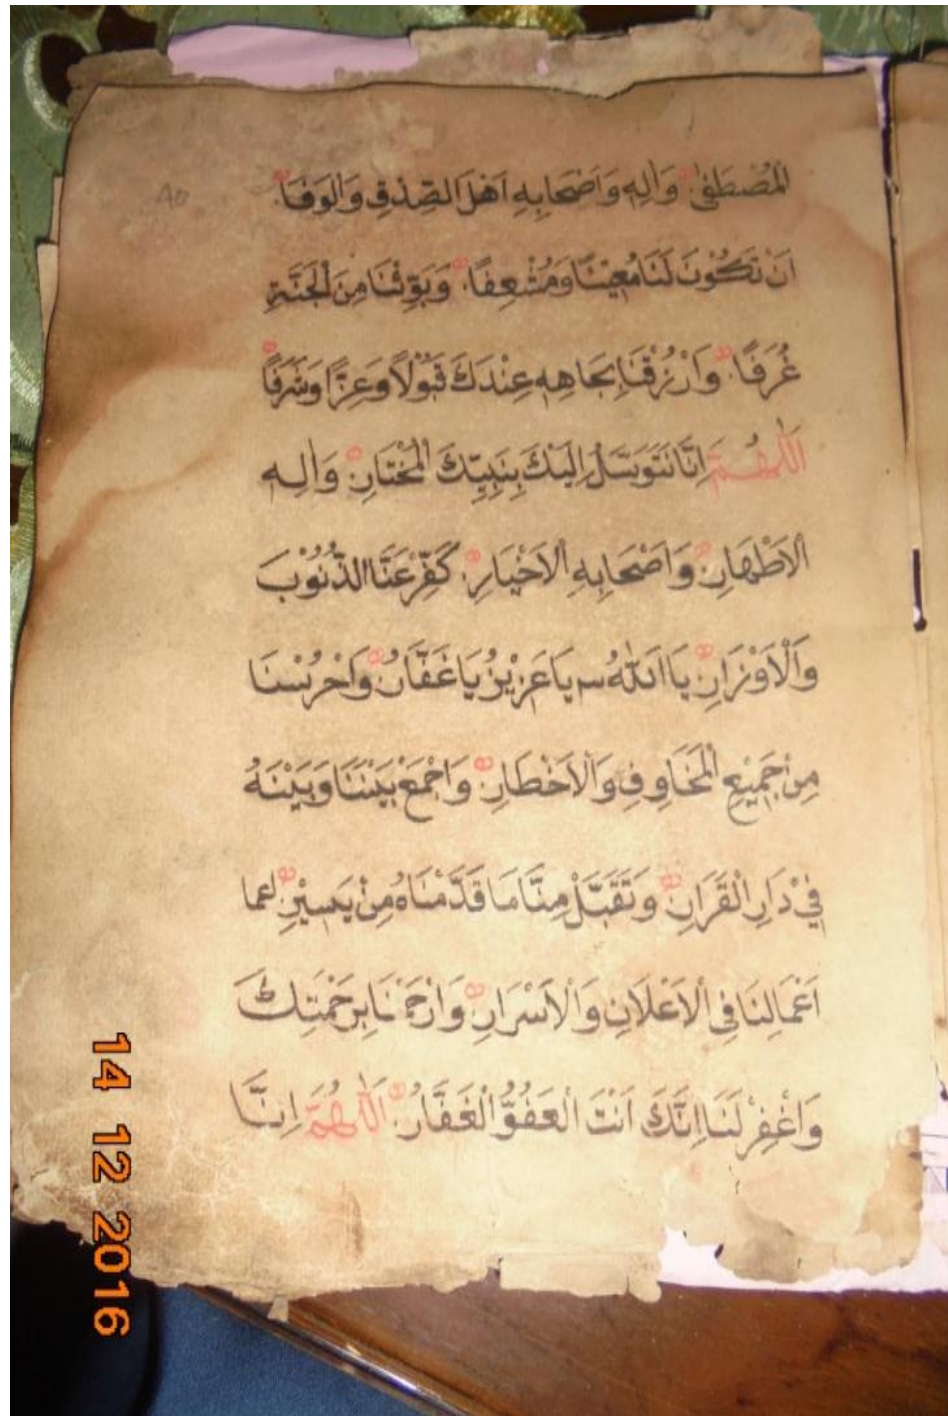 الْمُصْطَفٰى وَاٰلِهِ وَاَصْحَابِهِ اَهْلِ الصِّدْقِ وَالْوَفَا
اَنْ تَكُوْنَ لَنَا مُعِيْنًا وَمُسْعِفًا وَبَوِّئْنَا مِنَ الْجَنَّةِ
غُرَفًا وَارْزُقْنَا بِجَاهِهِ عِنْدَكَ قَبُوْلًا وَعِزًّا وَشَرَفًا
اَللّٰهُمَّ اِنَّا نَتَوَسَّلُ اِلَيْكَ بِنَبِيِّكَ الْمُخْتَارِ وَاٰلِهِ
الْاَطْهَارِ وَاَصْحَابِهِ الْاَخْيَارِ كَفِّرْ عَنَّا الذُّنُوْبَ
وَالْاَوْزَارِ يَا اَللّٰهُ يَا عَزِيْزُ يَا غَفَّارُ وَاحْرُسْنَا
مِنْ جَمِيْعِ الْمَخَاوِفِ وَالْاَخْطَارِ وَاجْمَعْ بَيْنَنَا وَبَيْنَهُ
فِيْ دَارِ الْقَرَارِ وَتَقَبَّلْ مِنَّا مَا قَدَّمْنَاهُ مِنْ يَسِيْرِ اعما
اَعْمَالِنَا فِى الْاَعْلَانِ وَالْاَسْرَارِ وَارْحَمْنَا بِرَحْمَتِكَ
وَاغْفِرْ لَنَا اِنَّكَ اَنْتَ الْعَفُوُّ الْغَفَّارُ اَللّٰهُمَّ اِنَّا
14 12 2016